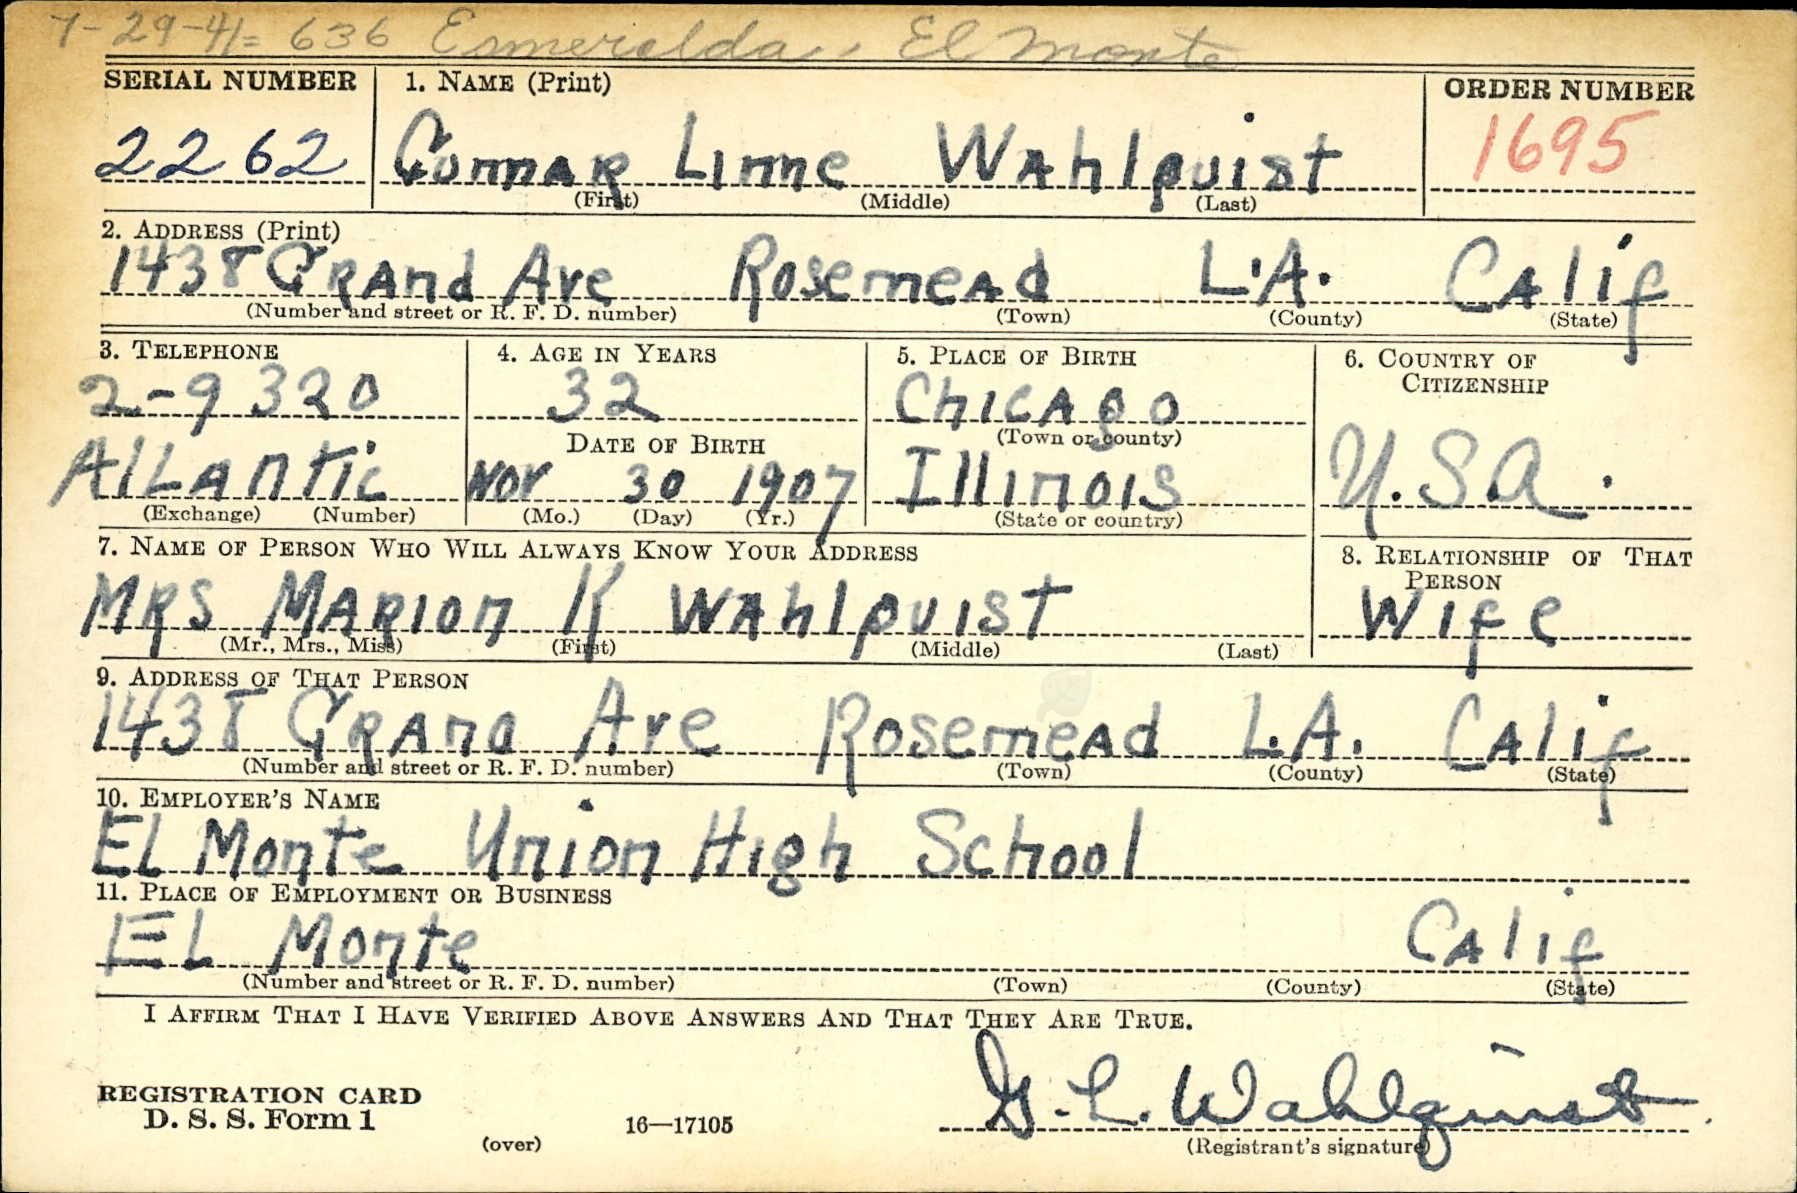 7-29-41= 636 Esmeralda, El Monte
SERIAL NUMBER 1. NAME (Print) ORDER NUMBER
2262 Gunnar Linne Wahlquist 1695
(First) (Middle) (Last)
2. ADDRESS (Print)
1438 Grand Ave Rosemead L.A. Calif
(Number and street or R. F. D. number) (Town) (County) (State)
3. TELEPHONE 4. AGE IN YEARS 5. PLACE OF BIRTH 6. COUNTRY OF CITIZENSHIP
2-9320 32 Chicago
DATE OF BIRTH (Town or county)
Atlantic Nov 30 1907 Illinois U.S.A.
(Exchange) (Number) (Mo.) (Day) (Yr.) (State or country)
7. NAME OF PERSON WHO WILL ALWAYS KNOW YOUR ADDRESS 8. RELATIONSHIP OF THAT PERSON
Mrs Marion K Wahlquist Wife
(Mr., Mrs., Miss) (First) (Middle) (Last)
9. ADDRESS OF THAT PERSON
1438 Grand Ave Rosemead L.A. Calif
(Number and street or R. F. D. number) (Town) (County) (State)
10. EMPLOYER'S NAME
El Monte Union High School
11. PLACE OF EMPLOYMENT OR BUSINESS
El Monte Calif
(Number and street or R. F. D. number) (Town) (County) (State)
I AFFIRM THAT I HAVE VERIFIED ABOVE ANSWERS AND THAT THEY ARE TRUE.
REGISTRATION CARD
D. S. S. Form 1 16—17105 G. L. Wahlquist
(over) (Registrant's signature)